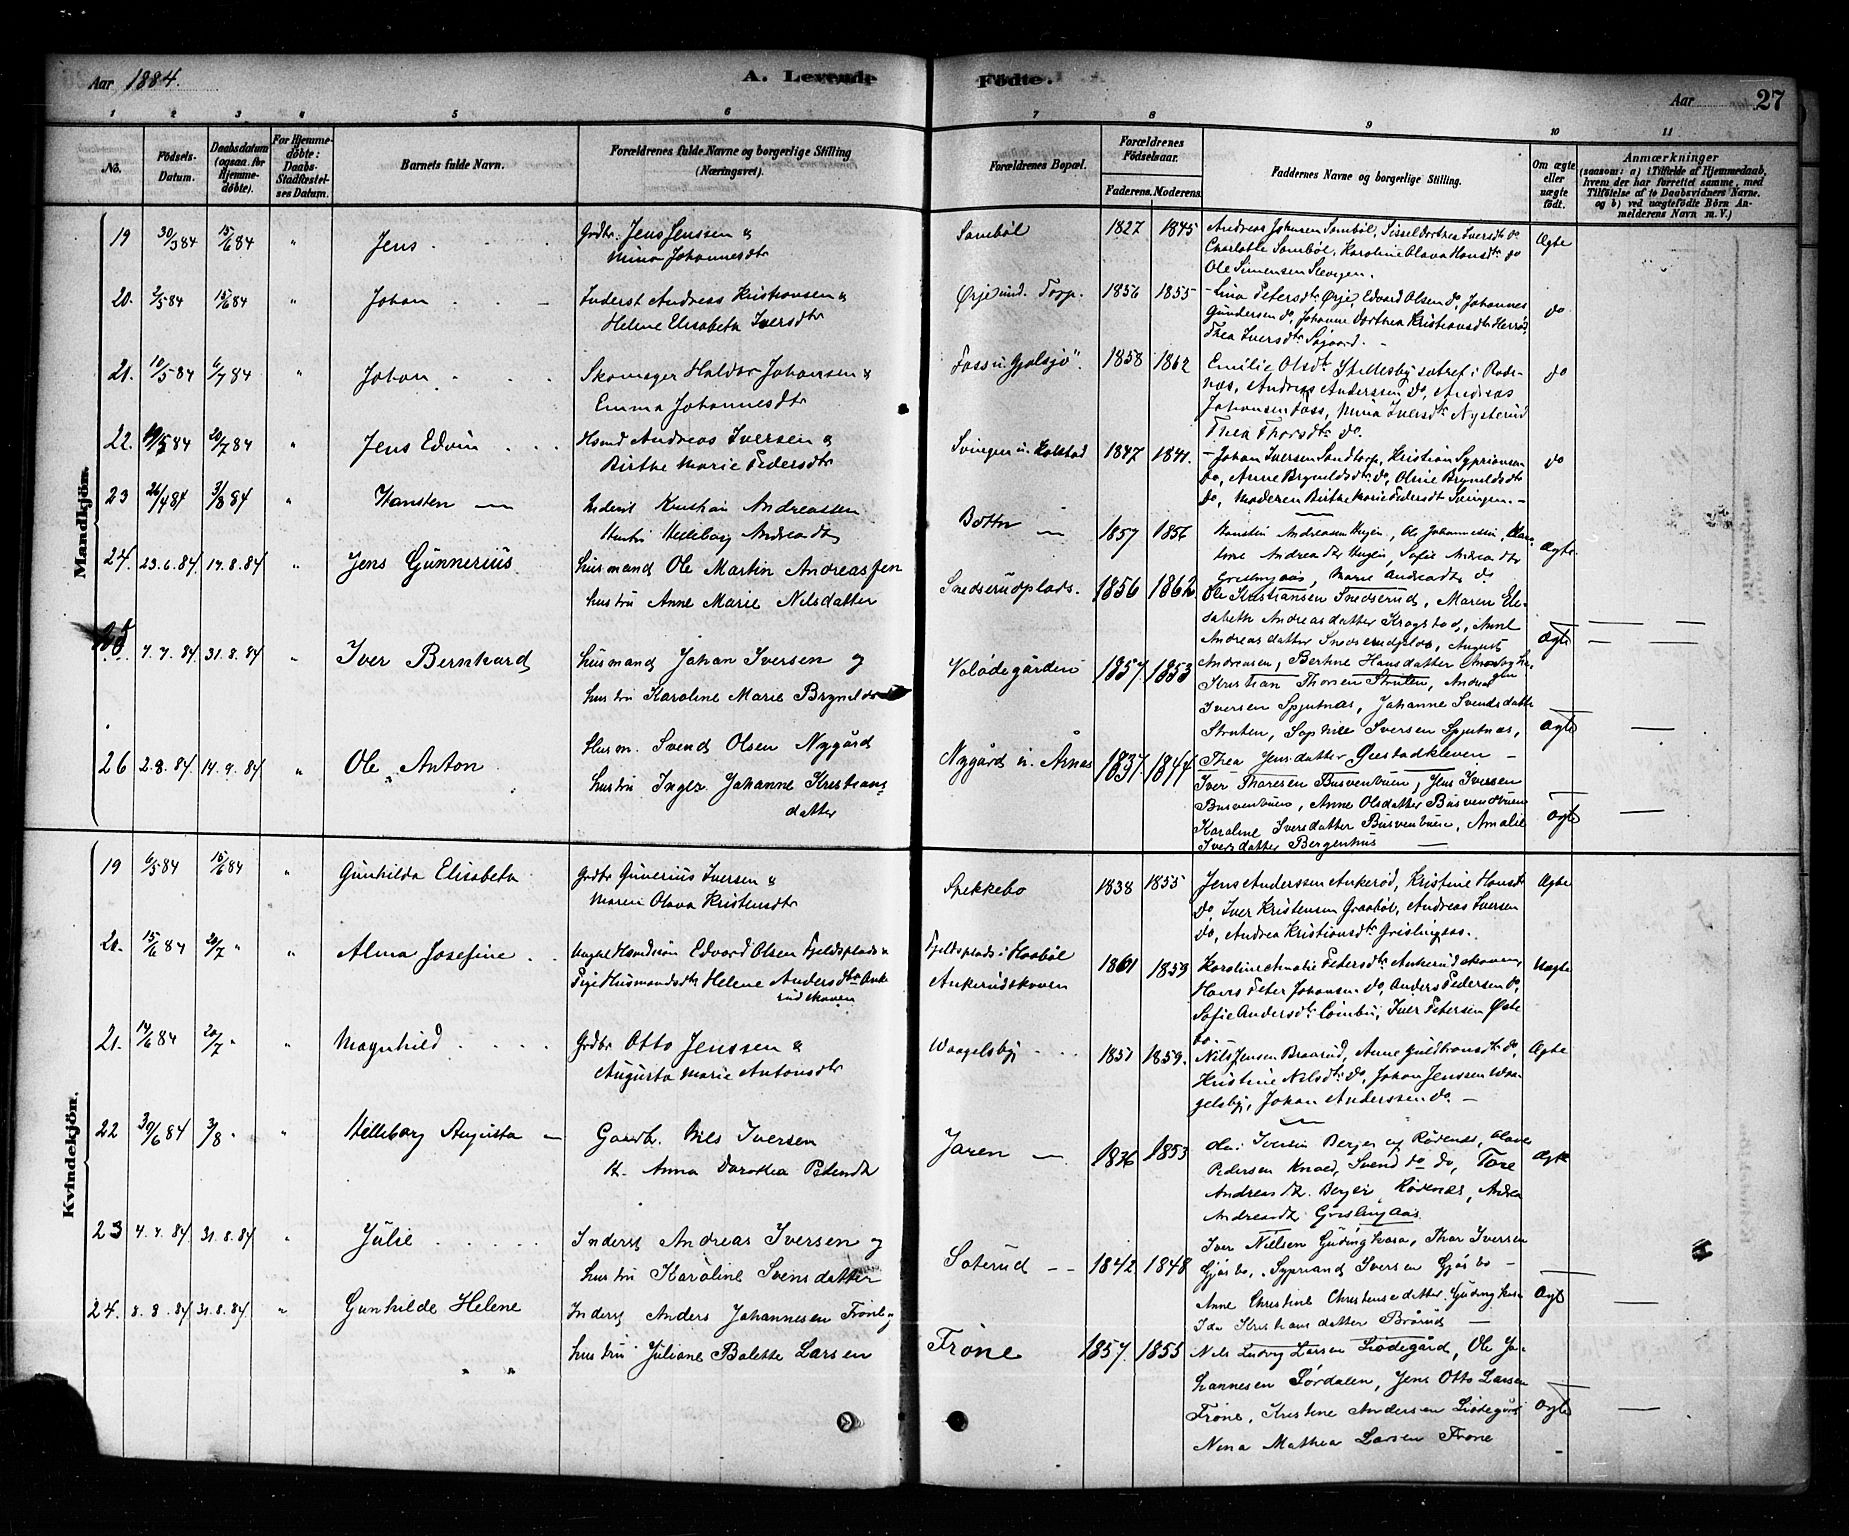 Aar 1884.
A. Levende Födte.
Aar 27
1 2 3 4 5 6 7 8 9 10 11
No.
Födsels-Datum.
Daabsdatum (ogsaa for Hjemme-döbte).
For Hjemme-döbte: Daabs-Stadfæstel-ses Datum.
Barnets fulde Navn.
Forældrenes fulde Navne og borgerlige Stilling
(Næringsvei).
Forældrenes Bopæl.
Forældrenes Födselsaar.
Faderens. Moderens.
Faddernes Navne og borgerlige Stilling.
Om ægte eller uægte födt.
Anmærkninger
(saasom: a) i Tilfælde af Hjemmedaab,
hvem der har forrettet samme, med
Tilföielse af to Daabsvidners Navne.
og b) ved uægtefödte Börn An-
melderens Navn m. V.)
Mandkjön.
19 30/3 84 15/6 84 " Jens Grdbr. Jens Jenssen &
Mina Johannesdtr
Sambøl 1827 1845 Andreas Johansen Sambøl, Sissel Dorthea Iversdtr do
Charlotte Sambøl, Karoline Olava Hansdtr do
Ole Simensen
Ægte
20. 2/5 84 15/6 84 " Johan Inderst Andreas Kristiansen &
Helene Elisabeth Iversdtr
Ørje und. Torp. 1856 1855 Lina Petersdtr Ørje, Edvard Olsen do, Johannes
Gundersen do, Johanne Dorthea Kristiansdtr
Thea Iversdtr
do
21. 10/5 84 6/7 84 " Johan Skomager Haldor Johansen &
Emma Johannesdtr
Foss u. Gjølsjø 1858 1862 Emilie Olsdtr
Andreas Anderssen do, Andreas
Johansen Foss, Mina Iversdtr Nysterud
Thea Thorsdtr do.
do
22. 19/5 84 20/7 84 " Jens Edvin Hsmd Andreas Iversen &
Birthe Marie Pedersdtr
Svingen u. Kolstad 1847 1841. Johan Iversen Sandtorp, Kristian Syprianssen
do, Anne Bryneldsdtr do, Oline Bryneldsdtr
do, Moderen Birthe Marie Pedersdt Svingen.
do
23 26/4 84 3/8 84 " Hansten Inderst Kristian Andreassen
Hustru Helleborg Andreasdtr
Botten 1857 1856 Hansten Andreasen Ole Johannessen,
Andreasdtr Sofie Andreasdtr
Grislingaas, Marie Andreasdtr do
Ægte
24. 23.6.84 17.8.84 " Jens Gunnerius. husmand Ole Martin Andreassen
hustru Anne Marie Nilsdatter
Snedserudplads. 1856 1862 Ole Kristiansen Snedserud, Maren Eli-
sabeth Andreasdatter Krogstad, Anne
Andreasdatter Snedserudplds, August
Andreasen, Berthe Hansdatter
Ægte
25 7.7.84 31.8.84 " Iver Bernhard husmand Johan Iversen og
hustru Karoline Marie Bryneldsd
Valødegården 1857 1853 Kristian Thorsen Struten, Andreas
Iversen Spjutnæs, Johanne Svendsdatter
Struten, Iversen Spjutnæs,
Thea Jensdatter
Ægte
26 2.8.84 14.9.84 " Ole Anton Husm. Svend Olsen Nygård
hustru Inger Johanne Kristians-
datter
Nygård u. Årnæs 1837 1844 Iver Thoresen Busvenbuen, Jens Iversen
Busvenbuen, Anne Olsdatter Busvenbuen
Karoline Iversdatter Busvenbuen, Amalie
Iversdatter Bergenhus
Ægte
Kvindekjön.
19 6/5 84 15/6 84 " Gunhilda Elisabeth Grdbr Gunerius Iversen &
Maren Olava Kristensdtr
Spekkebo 1838 1855 Jens Anderssen Ankerød, Kristine Hansdtr
do, Iver Kristensen Graabøl, Andreas Iversen
do, Andrea Kristiansdtr Grislingaas.
Ægte
20. 15/6 84 20/7 " " Alma Josefine Edvard Olsen Fjeldsplads &
Pige Husmandsdtr Helene Andersdtr Anke-
rudskoven
Fjeldsplads i Haabøl
Ankerudskoven
1861 1859 Karoline Amalie Petersdtr Ankerudskoven,
Hans Peter Johansen do, Anders Pedersen do,
Sofie Andersdtr Iver Petersen
do.
Uægte
21. 14/6 84 20/7 " Magnhild Grdbr Otto Jenssen &
Augusta Marie Antonsdtr
Waagelsby 1851 1859. Nils Jensen Braarud, Anne Guldbransdtr do,
Kristine Nilsdtr do, Johan Jenssen Waa-
gelsby, Johan Anderssen do.
Ægte
22 30/6 84 3/8 " " Helleborg Augusta Gaardbr. Nils Iversen
H. Anna Dorothea Pedersdtr
Jaren 1836 1853 Iversen Berger og Rødenæs, Olaves
Pedersen Svend do do, Tore
Andreasdtr. Berger, Rødenæs, Andrea
Andreasdtr Grislingaas.
Ægte
23 7.7.84 31.8.84 " Julie Inderst Andreas Iversen og
hustru Karoline Svensdatter
Soterud 1842 1848 Iver Nielsen Thor Iversen
Gjøsbo, Syprian Iversen Gjøsbo
Anne Christine Christensedatter.
Ida Kristiansdatter Brårud
Ægte
24. 8.8.84 31.8.84 " Gunhilde Helene Inderst Anders Johannesen Frøne og
hustru Juliane Balette Larsen
Frøne 1857. 1855 Nils Ludvig Larsen Liødegård, Ole Jo-
hannesen Sørdalen, Jens Otto Larsen
Frøne, Kristine Andersen Liødegård
Nina Mathea Larsen Frøne
Ægte